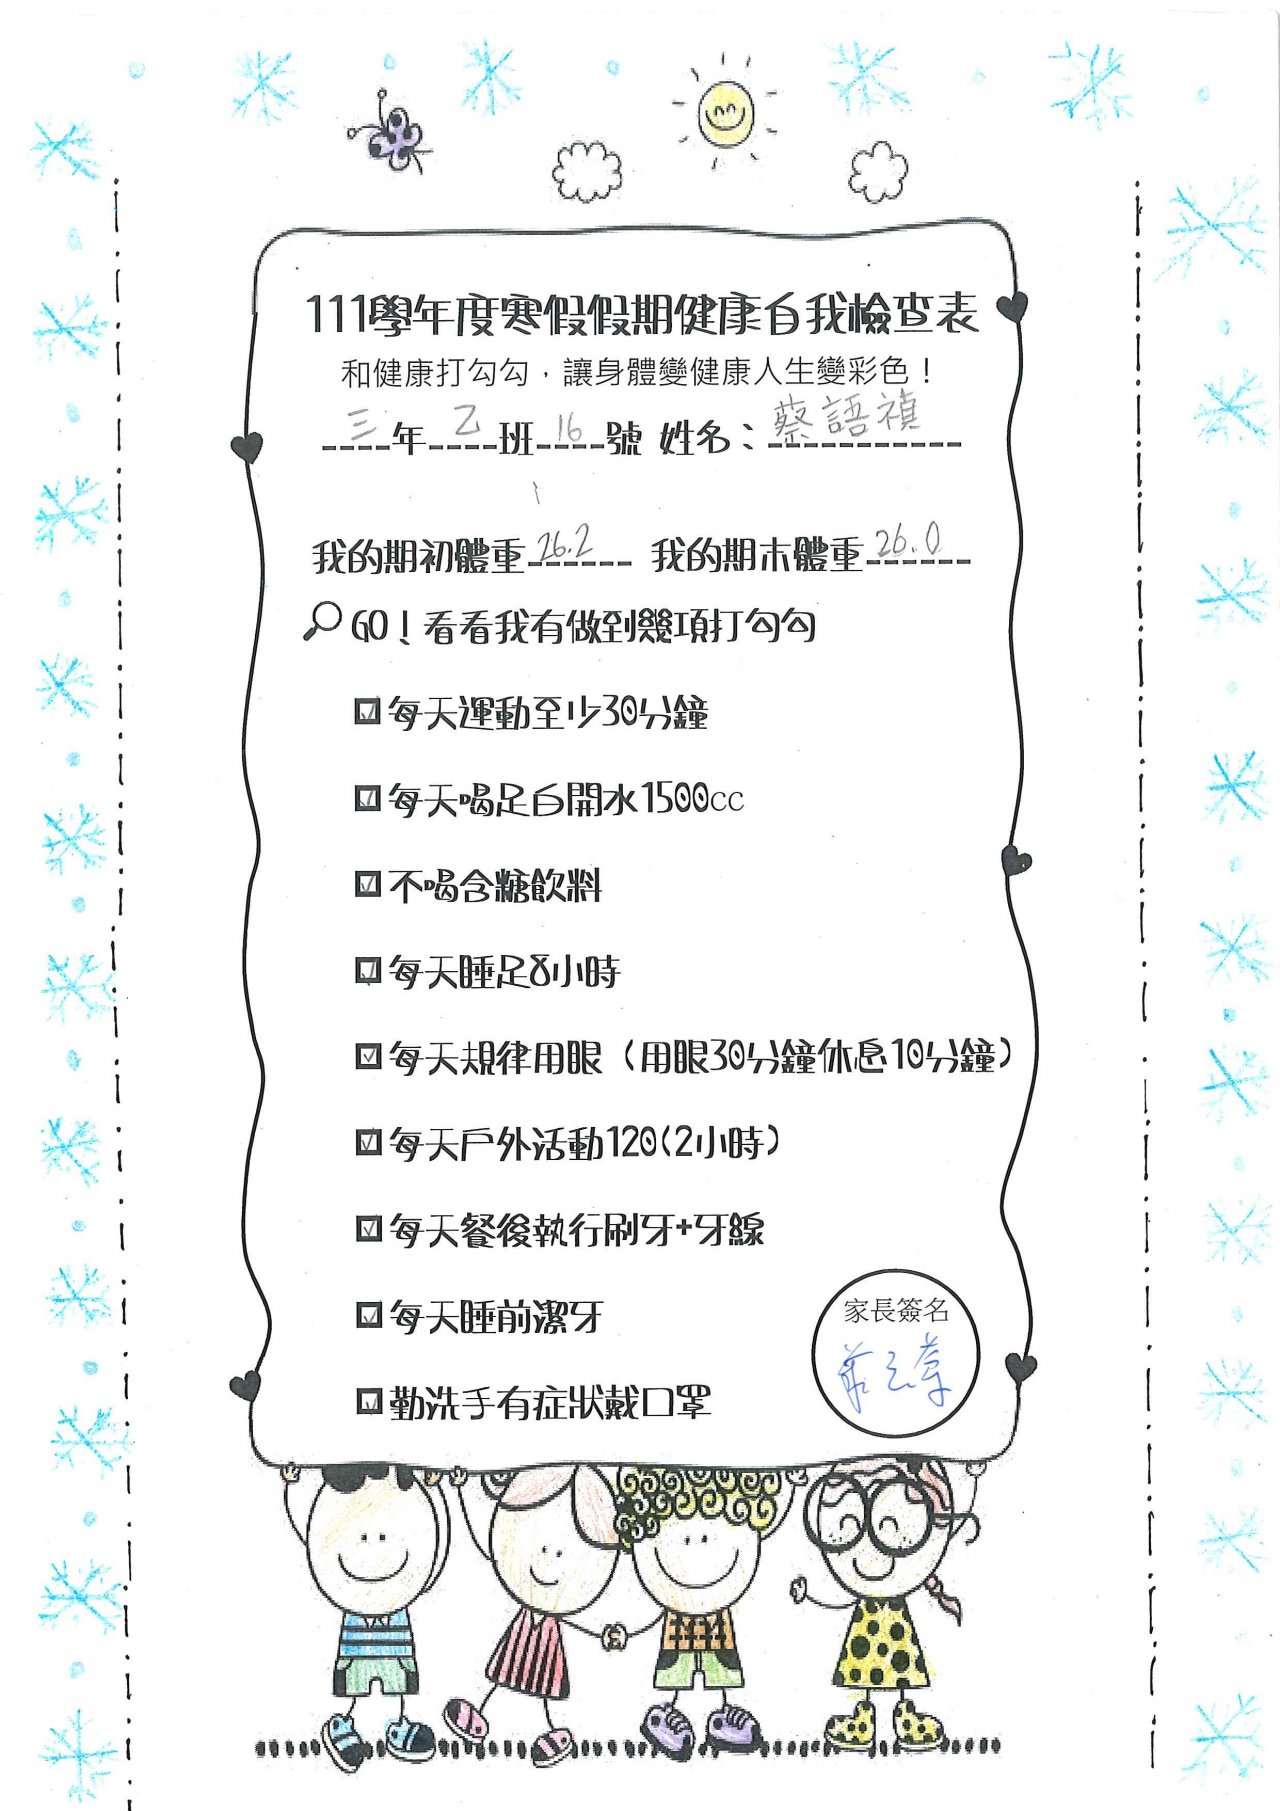 111學年度寒假假期健康自我檢查表
和健康打勾勾，讓身體變健康人生變彩色！
三年乙班16號 姓名：蔡語禎
我的期初體重26.2 我的期末體重26.0
GO！看看我有做到幾項打勾勾
☑每天運動至少30分鐘
☑每天喝足白開水1500cc
☑不喝含糖飲料
☑每天睡足8小時
☑每天規律用眼（用眼30分鐘休息10分鐘）
☑每天戶外活動120(2小時)
☑每天餐後執行刷牙+牙線
☑每天睡前潔牙
☑勤洗手有症狀戴口罩
家長簽名